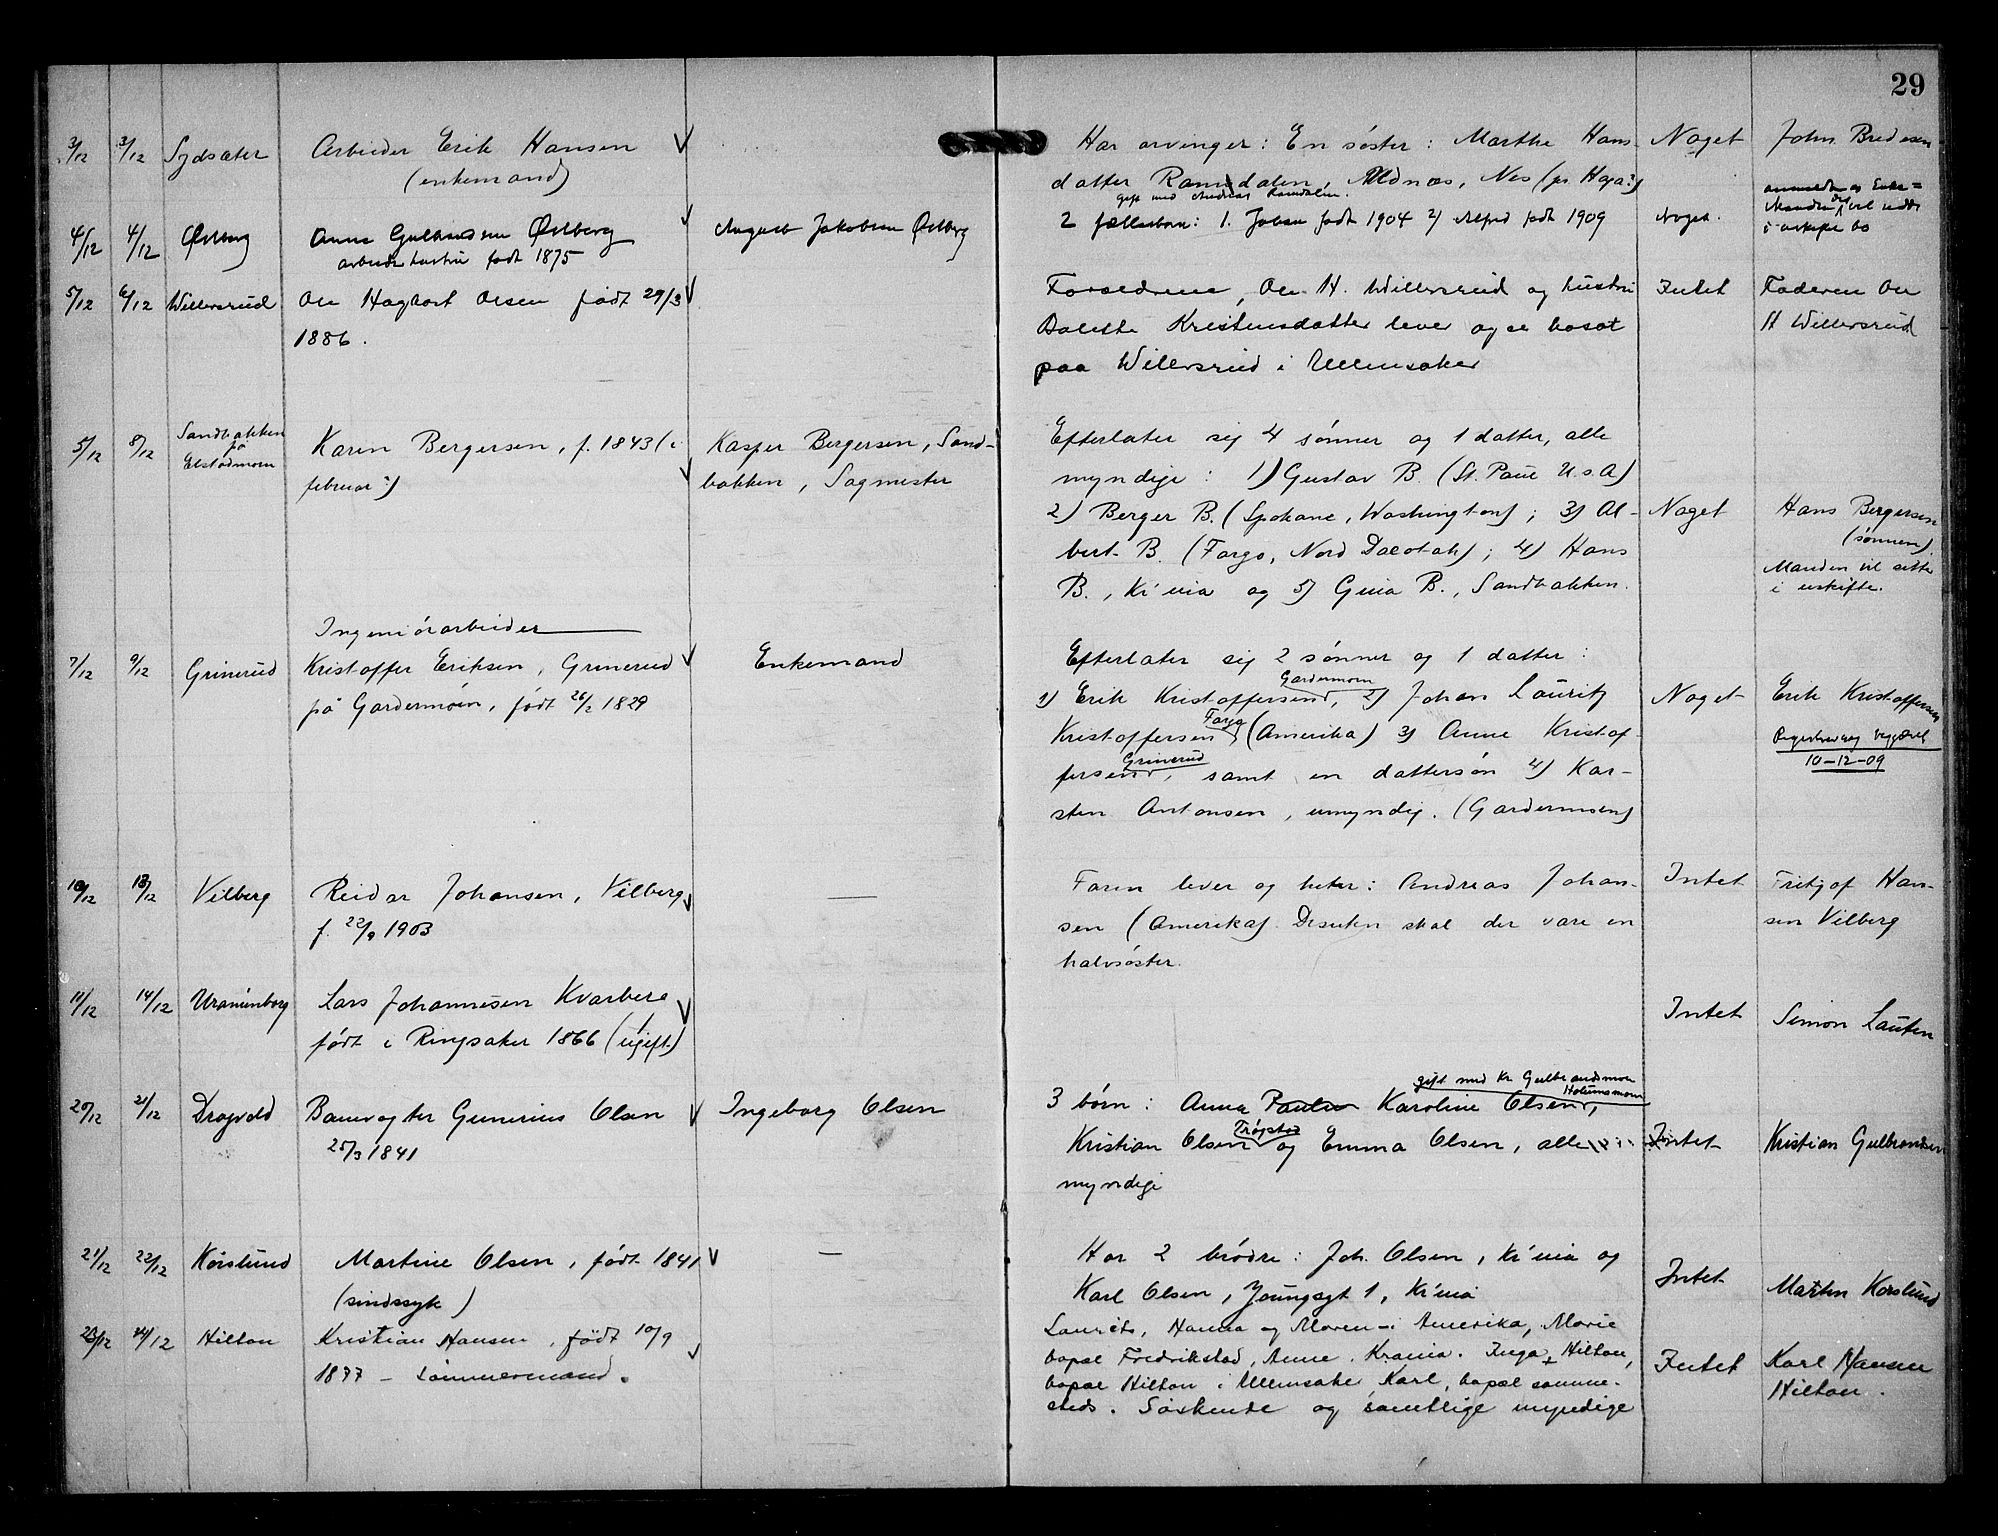 29
3/12 3/12 Sydsæter Arbeider Erik Hansen
(enkemand)
Har arvinger: En søster: Marthe Hans-
datter Ramsdalen, Nes (pr. Haga?)
gift med Andreas Ramdalen.
Noget John Bredesen
4/12 4/12 Østberg Anne Gulbrandsen Østberg
arbeiderhustru født 1875
August Jakobsen Østberg
2 fællesbarn: 1. født 1904 2) Alfred født 1909
Noget.
Manden vil sidde
i uskifte bo
5/12 6/12 Willersrud Ole Hagbart Olsen født 29/3
1886.
Forældrene, Ole H. Willersrud og hustru
Kristensdatter lever og er bosat
paa Willersrud i Ullensaker
Intet Faderen Ole
H Willersrud
5/12 8/12 Sandbakken
på
Elstadmoen
Karen Bergersen, f. 1843 (i
februar?)
Kasper Bergersen, Sand-
bakken, Sagmester
Efterlater sig 4 sønner og 1 datter, alle
myndige: 1) Gustav B. (St. Paul U.S.A)
2) Berger B. (Spokane, Washington); 3) Al-
bert B. (Fargo, Nord Dacotah); 4) Hans
B., Kr'ania og 5) Gina B., Sandbakken.
Noget Hans Bergersen
(sønnen)
Manden vil sitte
i uskifte.
Ingeniörarbeider
7/12 9/12 Grinerud Kristoffer Eriksen, Grinerud
på Gardermoen, født 26/2 1829
Enkemand
Efterlater sig 2 sønner og 1 datter:
Gardermoen
1) Erik Kristoffersen, 2) Johan Lauritz
Fargo
Kristoffersen (Amerika) 3) Anne Kristof-
Grinerud
fersen, samt en dattersøn 4) Kar-
sten Antonsen, umyndig. (Gardermoen)
Noget Erik Kristoffersen
Registrering begjæret
10-12-09
10/12 13/12 Vilberg Reidar Johansen, Vilberg
f. 22/9 1903
—
Faren lever og heter: Andreas Johan-
sen (Amerika). Desuten skal der være en
halvsøster.
Intet Fritjof Han-
sen Vilberg
11/12 14/12 Uranienborg Lars Johannesen Kvarberg
født i Ringsaker 1866 (ugift)
Intet Simon Lauten
20/12 21/12 Dragvold Banevogter Gunerius Olsen
25/3 1841
Ingeborg Olsen
gift med Kr Gulbrandsmoen
Holumsmoen
3 børn: Anna Paulin Karoline Olsen,
Trøgstad
Kristian Olsen og Emma Olsen, alle
myndige
Intet Kristian Gulbrandsen
21/12 22/12 Korslund Martine Olsen, født 1841
(sindssyk)
—
Har 2 brödre: Joh. Olsen, Kr'ania og
Karl Olsen, Youngsgt 1, Kr'ania
Intet Martin Korslund
23/12 24/12 Hilton Kristian Hansen, født 10/9
1877 - tømmermand.
Laurits, Hanna og Maren i Amerika, Marie
bopæl Fredrikstad, Anne, Krania. Inga Hilton,
bopæl Hilton i Ullensaker Karl, bopæl samme-
steds. Søskende og samtlige myndige
Intet Karl Hansen
Hilton.